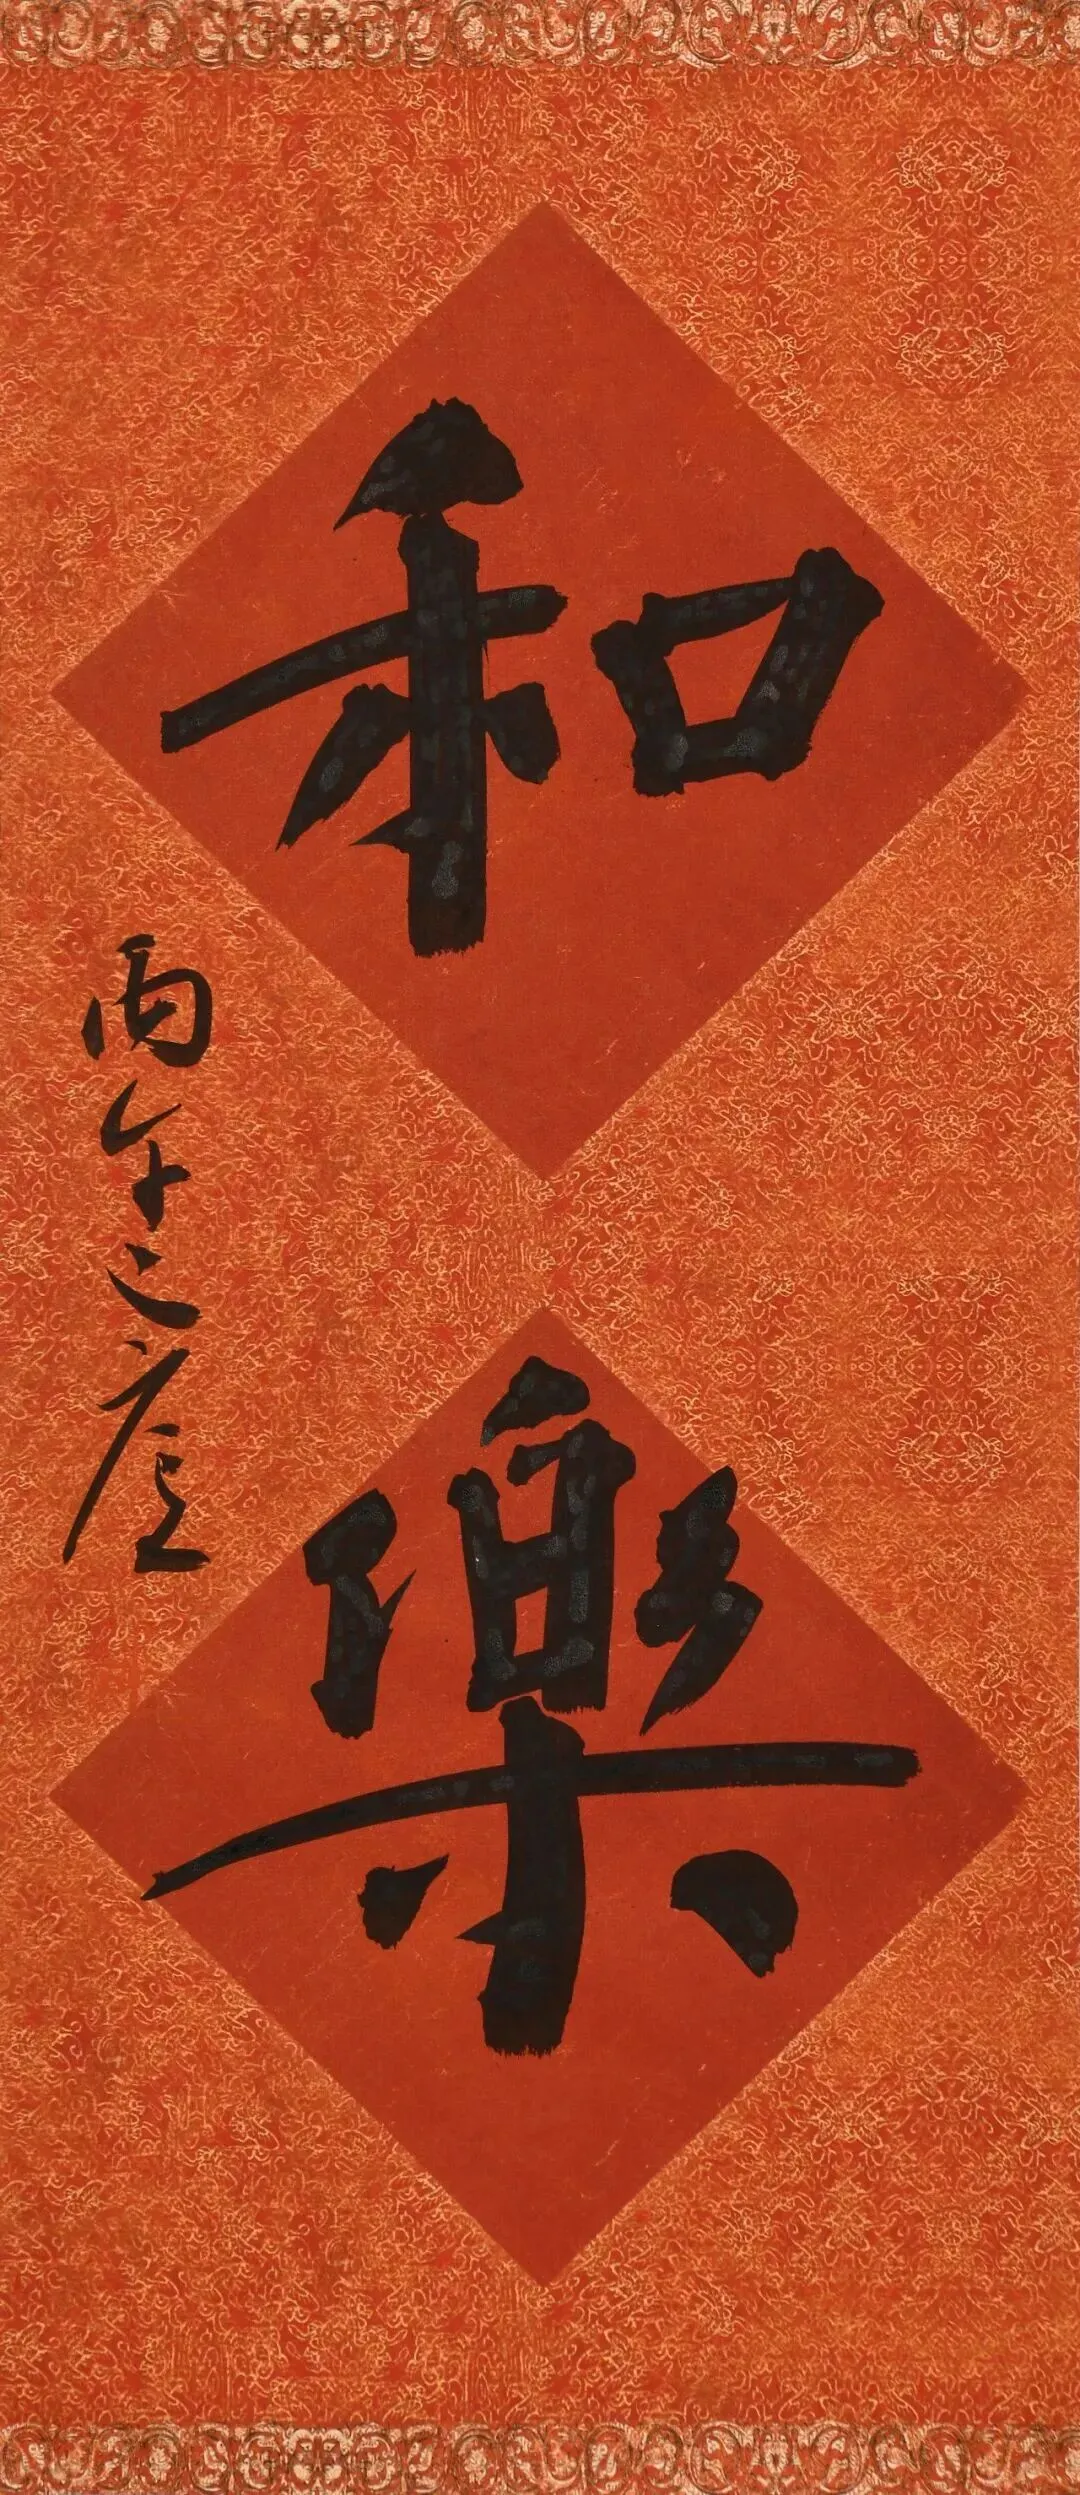 和
樂
丙午之